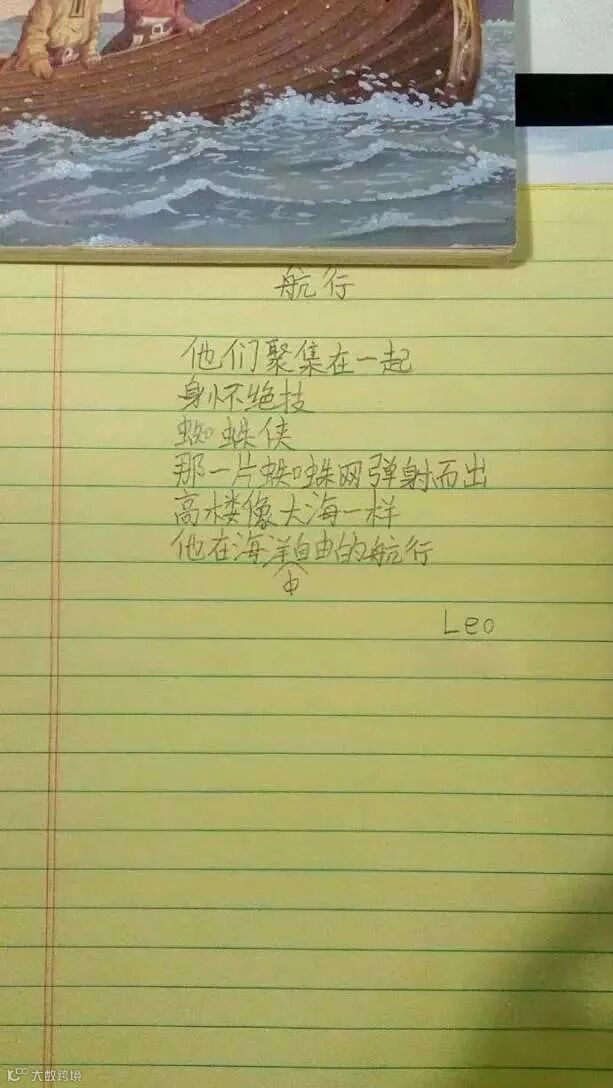 航行
他们聚集在一起
身怀绝技
蜘蛛侠
那一片蜘蛛网弹射而出
高楼像大海一样
他在海洋中自由的航行
Leo
大数跨境